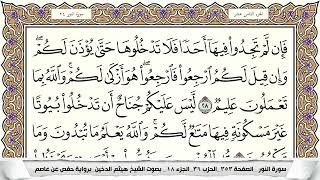 فَإِن لَّمْ تَجِدُوا۟ فِيهَآ أَحَدًا فَلَا تَدْخُلُوهَا حَتَّىٰ يُؤْذَنَ لَكُمْ ۖ
وَإِن قِيلَ لَكُمُ ٱرْجِعُوا۟ فَٱرْجِعُوا۟ ۖ هُوَ أَزْكَىٰ لَكُمْ ۚ وَٱللَّهُ بِمَا
تَعْمَلُونَ عَلِيمٌ ٢٨ لَّيْسَ عَلَيْكُمْ جُنَاحٌ أَن تَدْخُلُوا۟ بُيُوتًا
غَيْرَ مَسْكُونَةٍ فِيهَا مَتَٰعٌ لَّكُمْ ۚ وَٱللَّهُ يَعْلَمُ مَا تُبْدُونَ وَمَا
سورة النور الصفحة ٣٥٣ الحزب ٣٦ الجزء ١٨ بصوت الشيخ هيثم الدخين برواية حفص عن عاصم